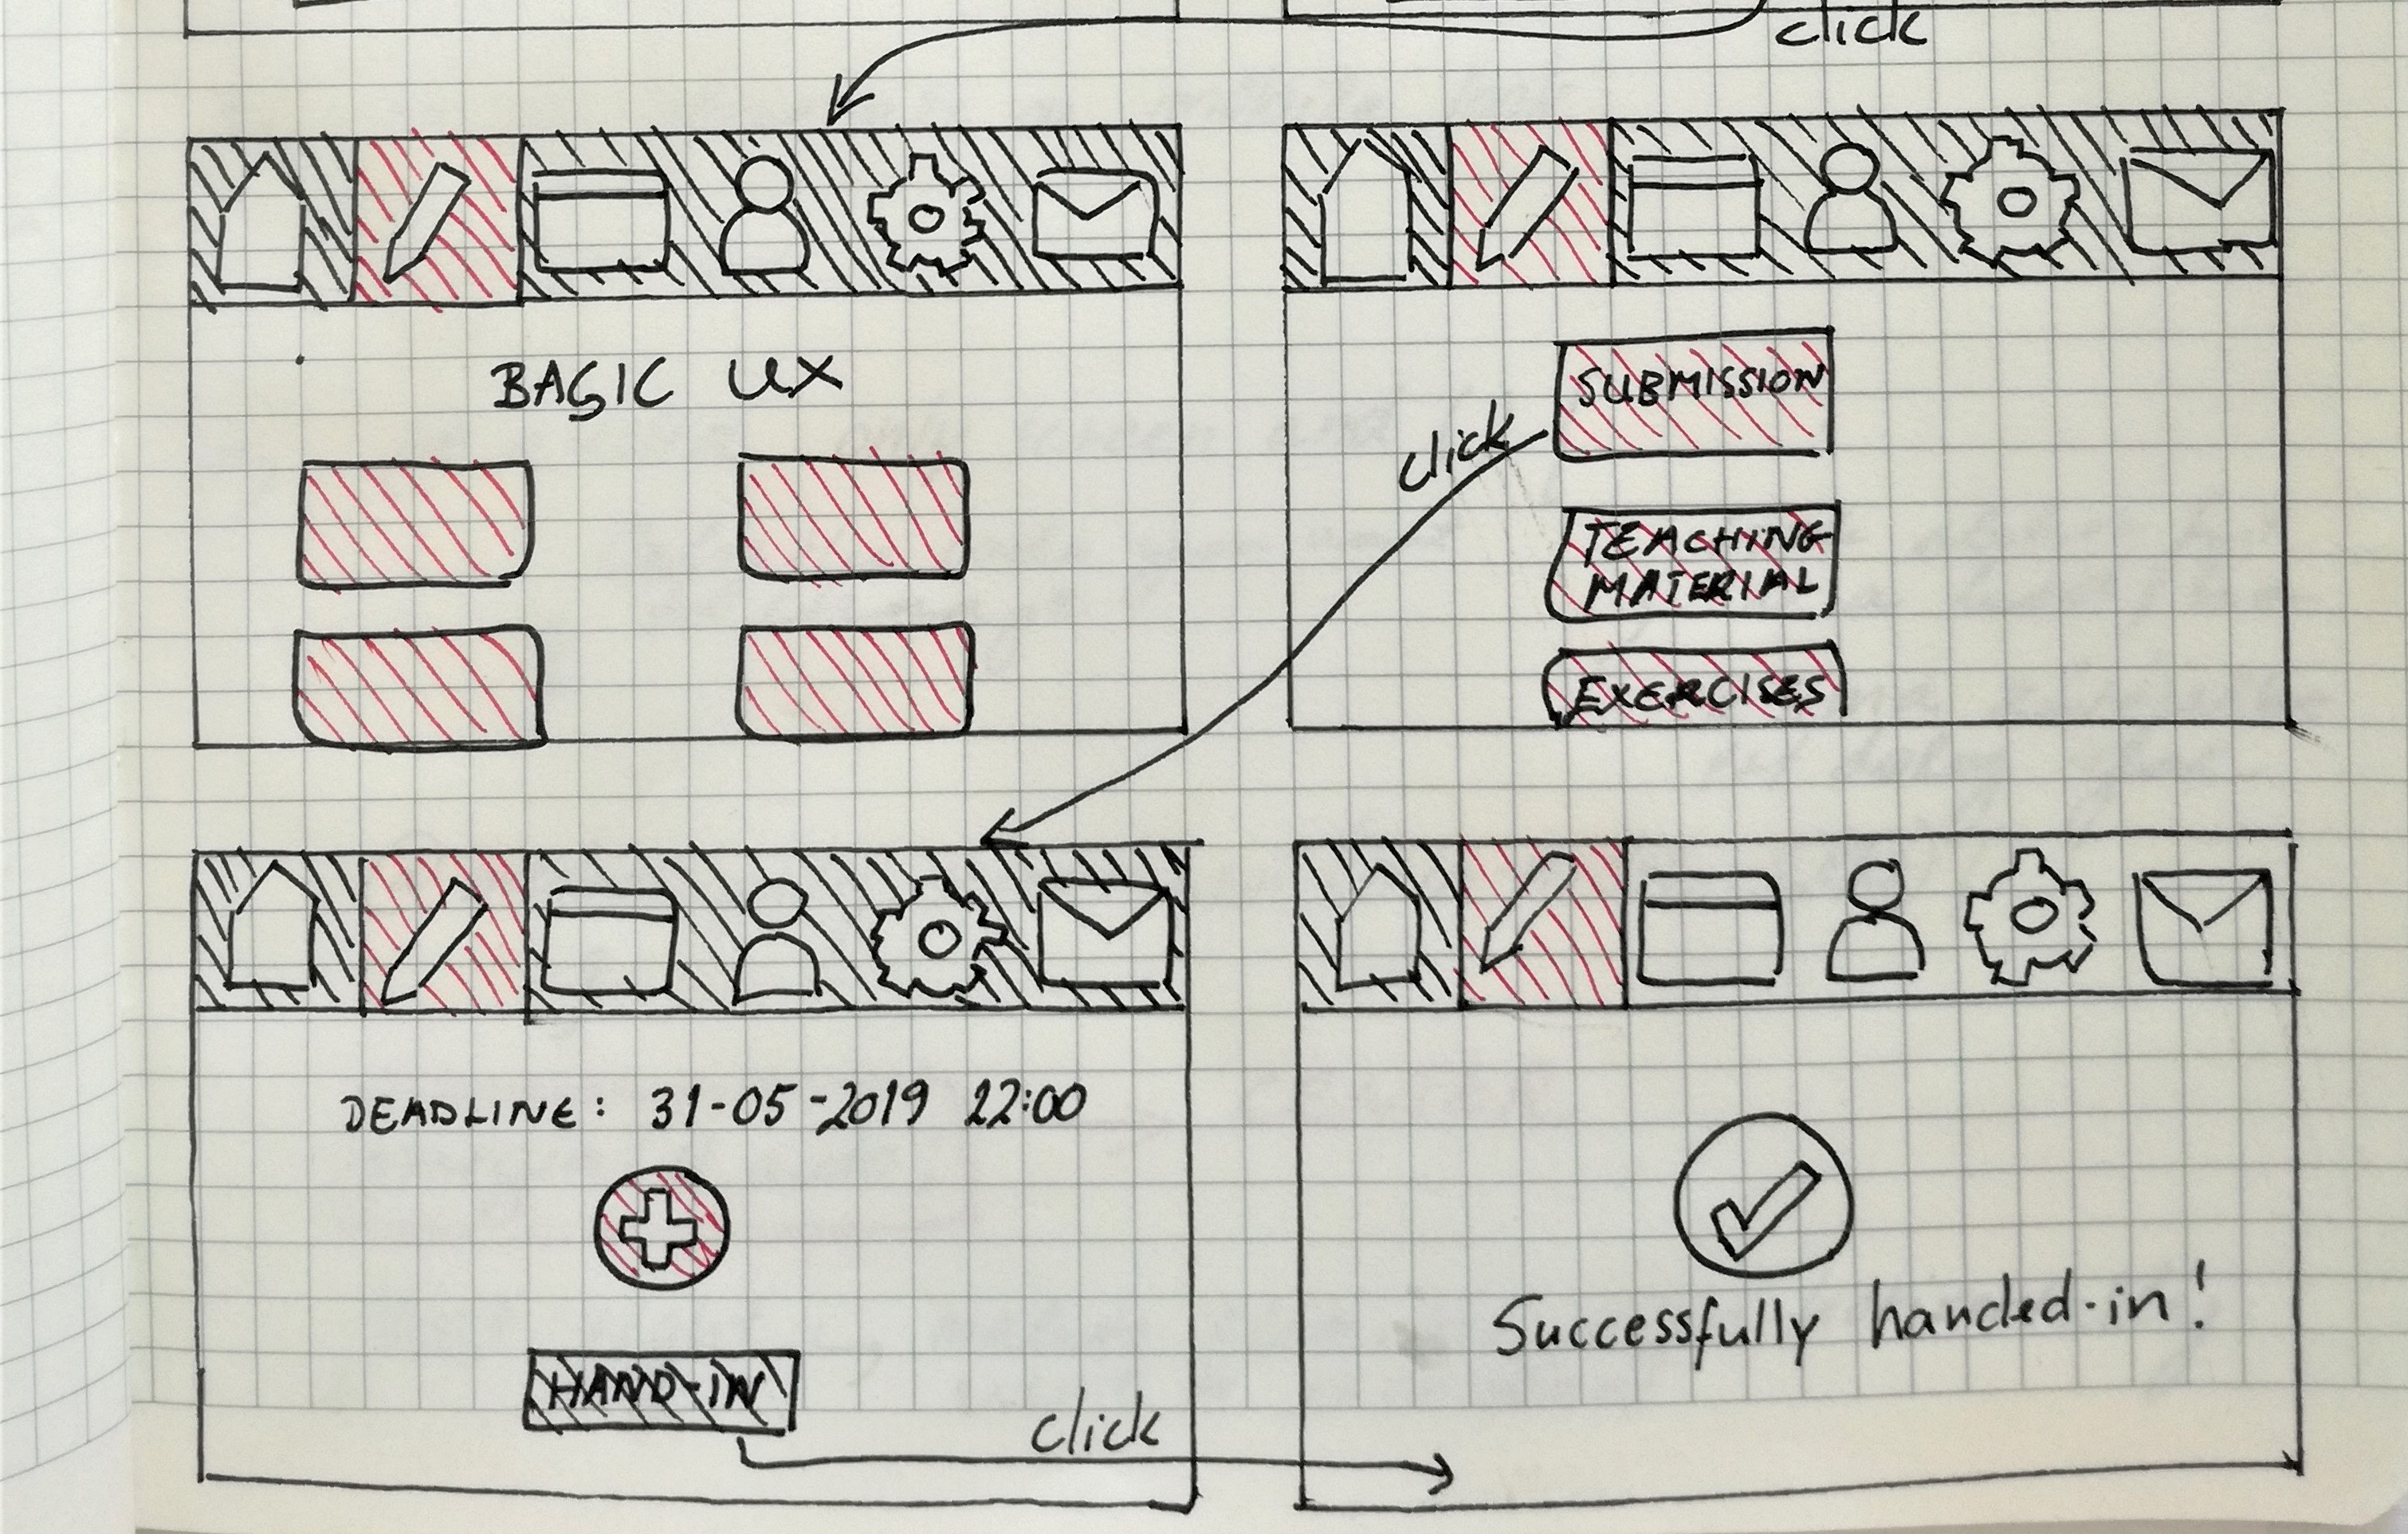 click
BASIC UX
SUBMISSION
click
TEACHING
MATERIAL
EXERCISES
DEADLINE: 31-05-2019 22:00
HAND-IN
click
Successfully handed-in!